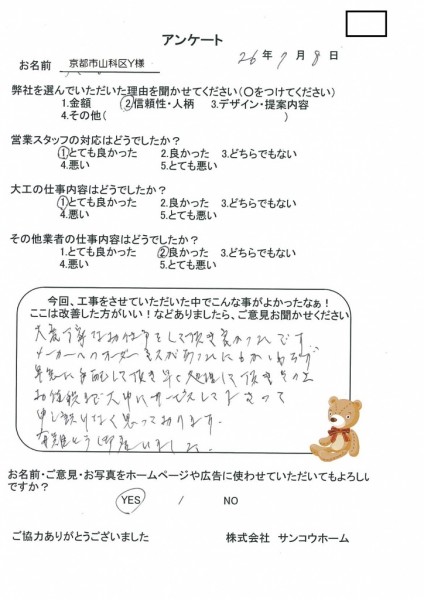 アンケート
お名前 京都市山科区Y様 26年 7月 8日
弊社を選んでいただいた理由を聞かせてください(〇をつけてください)
1.金額 2.信頼性・人柄 3.デザイン・提案内容
4.その他( )
営業スタッフの対応はどうでしたか?
1.とても良かった 2.良かった 3.どちらでもない
4.悪い 5.とても悪い
大工の仕事内容はどうでしたか?
1.とても良かった 2.良かった 3.どちらでもない
4.悪い 5.とても悪い
その他業者の仕事内容はどうでしたか?
1.とても良かった 2.良かった 3.どちらでもない
4.悪い 5.とても悪い
今回、工事をさせていただいた中でこんな事がよかったなぁ!
ここは改善した方がいい!などありましたら、ご意見お聞かせください
大変丁寧なお仕事をして頂き良かったです。
メーカーへのオーダーミスがあったにもかかわらず
早急に手配して頂き早く処理して頂き その上
お値段まで大巾にサービスして下さって
申し訳けなく思っております。
有難とう御座いました。
お名前・ご意見・お写真をホームページや広告に使わせていただいてもよろしい
ですか?
YES / NO
ご協力ありがとうございました 株式会社 サンコウホーム